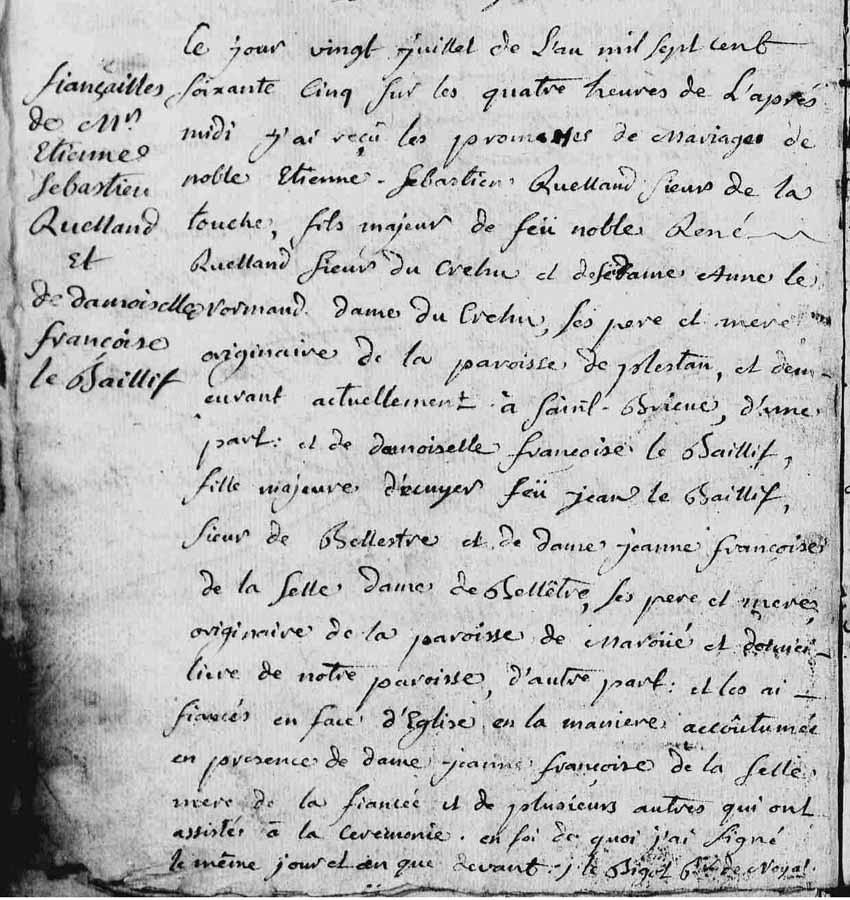 fiançailles
de Mr
Etienne
Sebastien
Ruelland
Et
de damoiselle
françoise
le Baillif
Ce jour vingt juillet de L'an mil sept cent
soixante Cinq sur les quatre heures de L'aprés
midi j'ai reçu les promesses de Mariage de
noble Etienne-Sebastien Ruelland sieur de la
touche, fils majeur de feü noble René
Ruelland sieur du Crehu et de dame Anne le
normand dame du Crehu, ses pere et mere
originaire de la paroisse de plestan, et dem-
eurant actuellement à Saint-Brieuc, d'une
part: et de damoiselle françoise le Baillif,
fille majeure d'écuyer feü jean le Baillif,
sieur de Bellestre et de dame jeanne françoise
de la selle dame de Bellêtre, ses pere et mere,
originaire de la paroisse de Maroüé et domici-
liere de notre paroisse, d'autre part: et les ai
fiancés en face d'Eglise en la maniere accoûtumée
en presence de dame jeanne françoise de la selle
mere de la fiancée et de plusieurs autres qui ont
assistés à la ceremonie. en foi de quoi j'ai signé
le même jour et an que devant: j. le Bigot de Noyal.